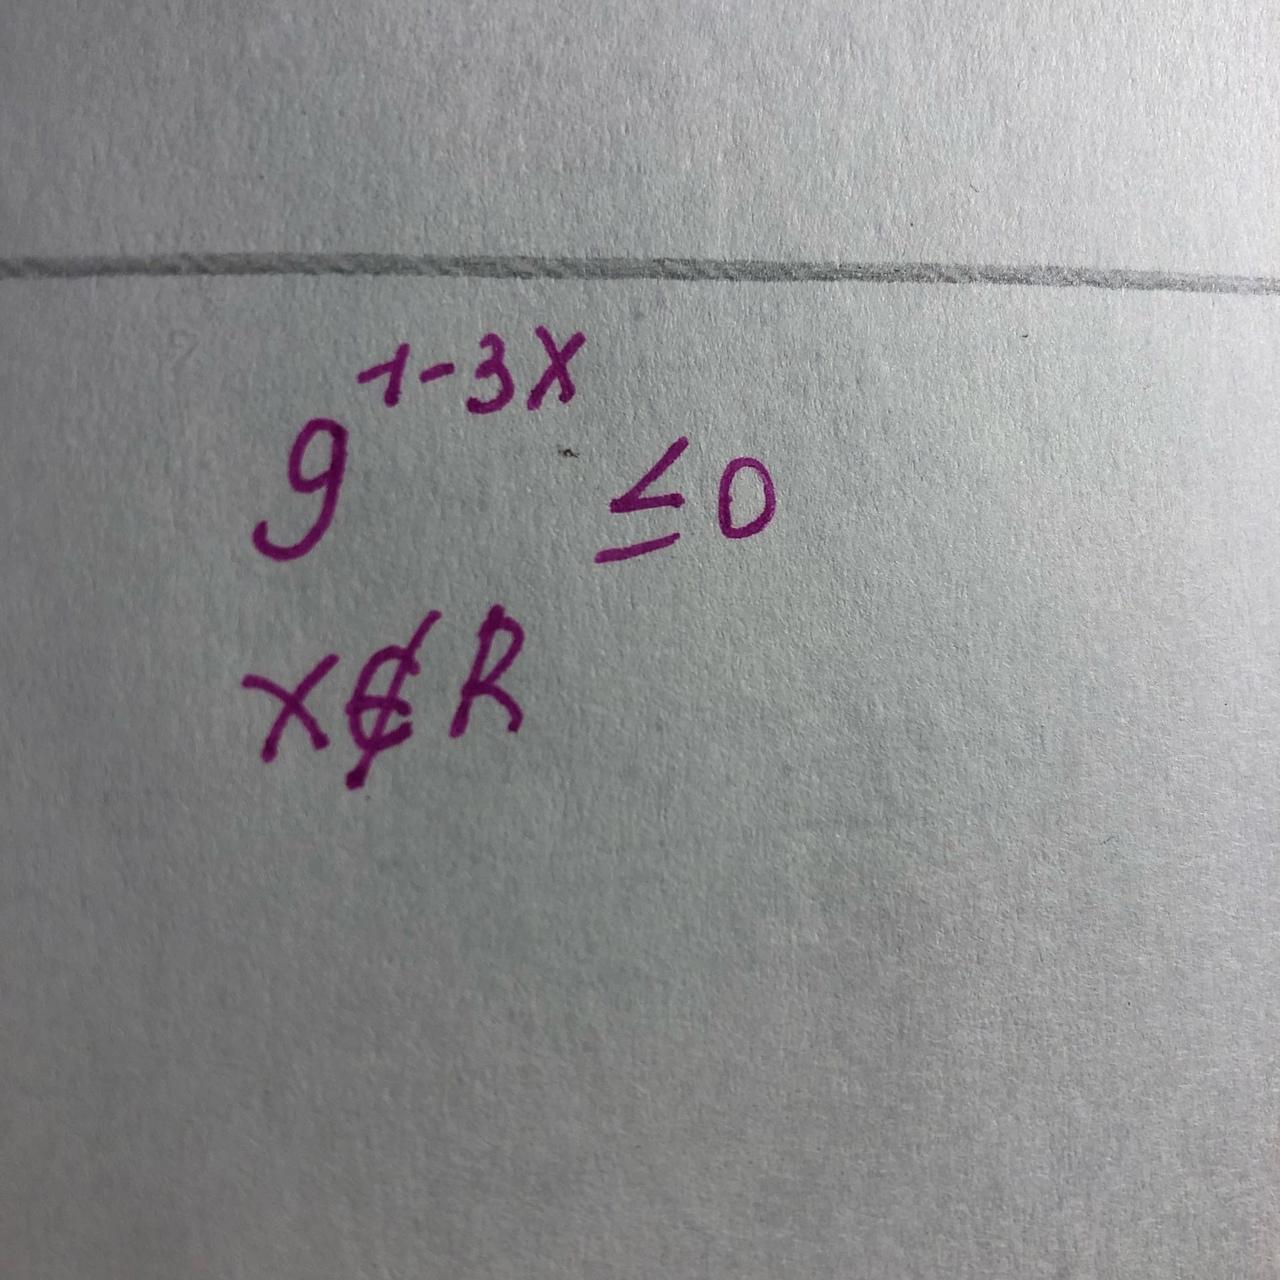 9^{1-3x} ≤ 0
x ∉ R